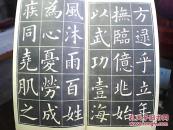 方逮乎立年
撫臨億兆始
以武功壹海
風沐雨百姓
為心憂勞成
疾同堯肌之